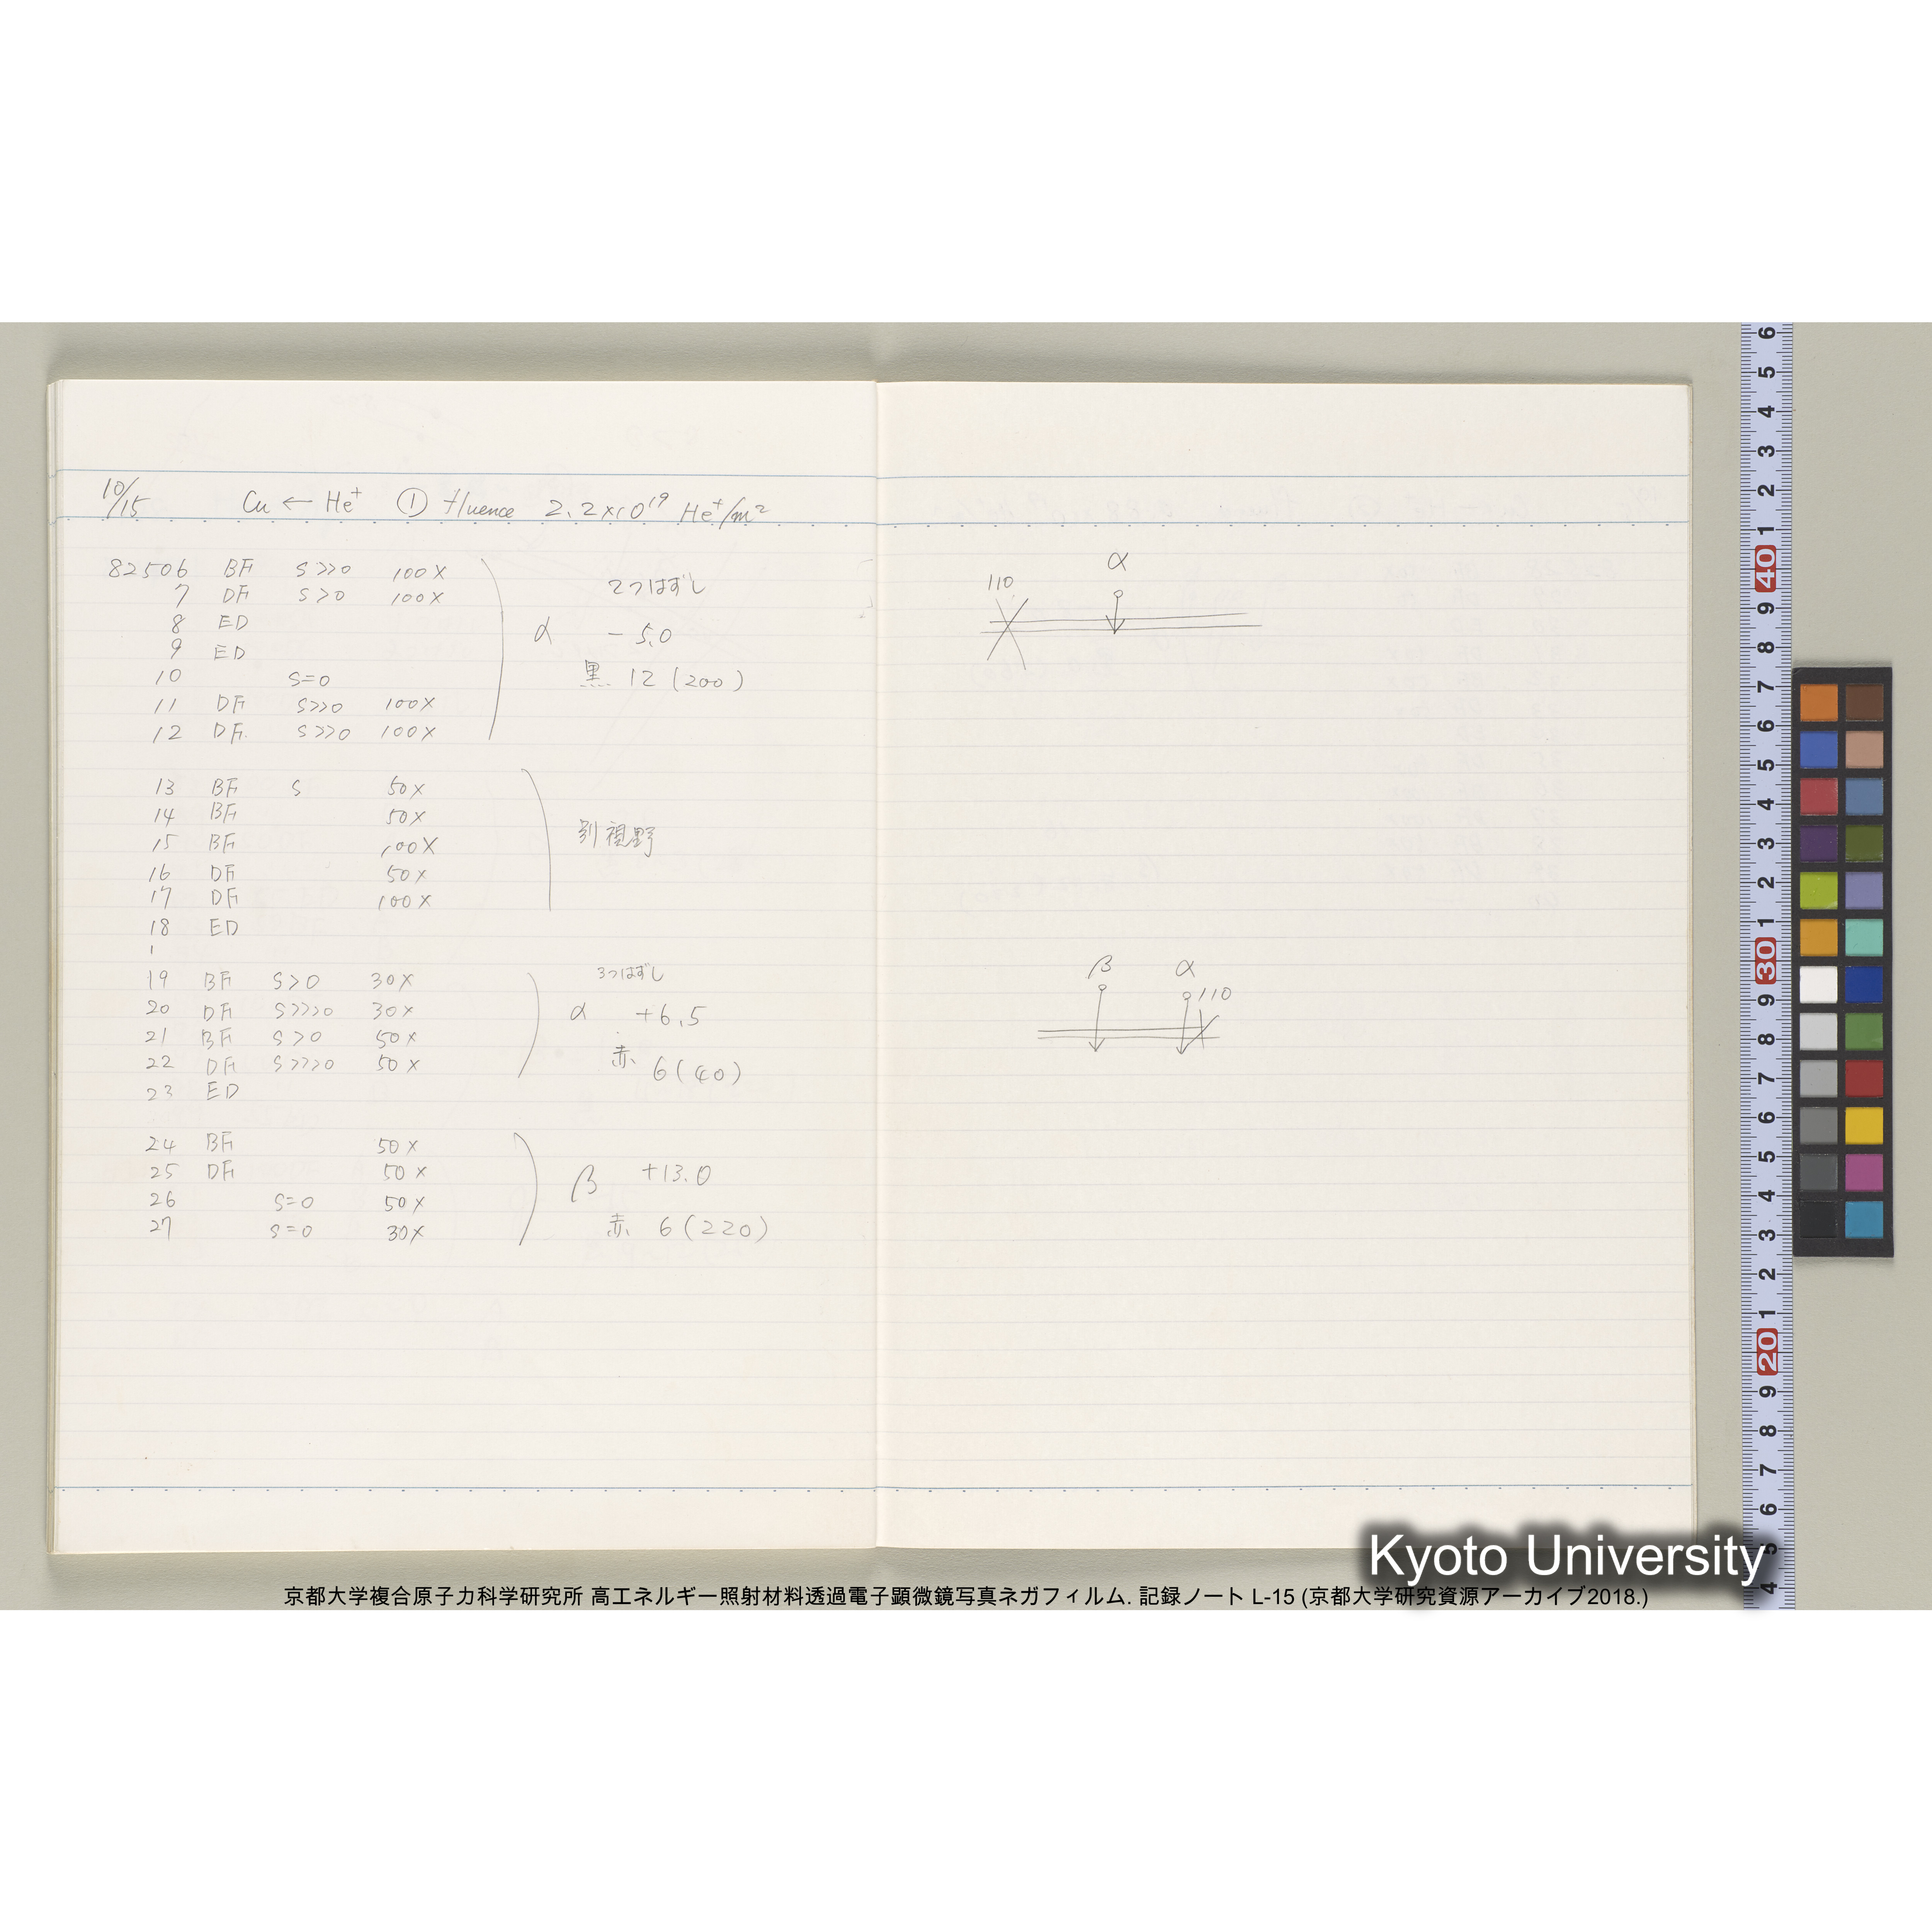 10/15 Cu ← He⁺ ① fluence 2.2×10¹⁹ He⁺/m²
82506 BF S>>0 100X
7 DF S>0 100X
8 ED
9 ED
10 S=0
11 DF S>>0 100X
12 DF. S>>0 100X
2つはずし
α −5.0
黒 12 (200)
13 BF S 50X
14 BF 50X
15 BF 100X
16 DF 50X
17 DF 100X
18 ED
別視野
19 BF S>0 30X
20 DF S>>>0 30X
21 BF S>0 50X
22 DF S>>>0 50X
23 ED
3つはずし
α +6.5
赤 6(40)
24 BF 50X
25 DF 50X
26 S=0 50X
27 S=0 30X
β +13.0
赤 6(220)
α
110
β α
110
6 5 4 3 2 1 40 9 8 7 6 5 4 3 2 1 30 9 8 7 6 5 4 3 2 1 20 9 8 7 6 5 4
Kyoto University
京都大学複合原子力科学研究所 高エネルギー照射材料透過電子顕微鏡写真ネガフィルム. 記録ノート L-15 (京都大学研究資源アーカイブ2018.)